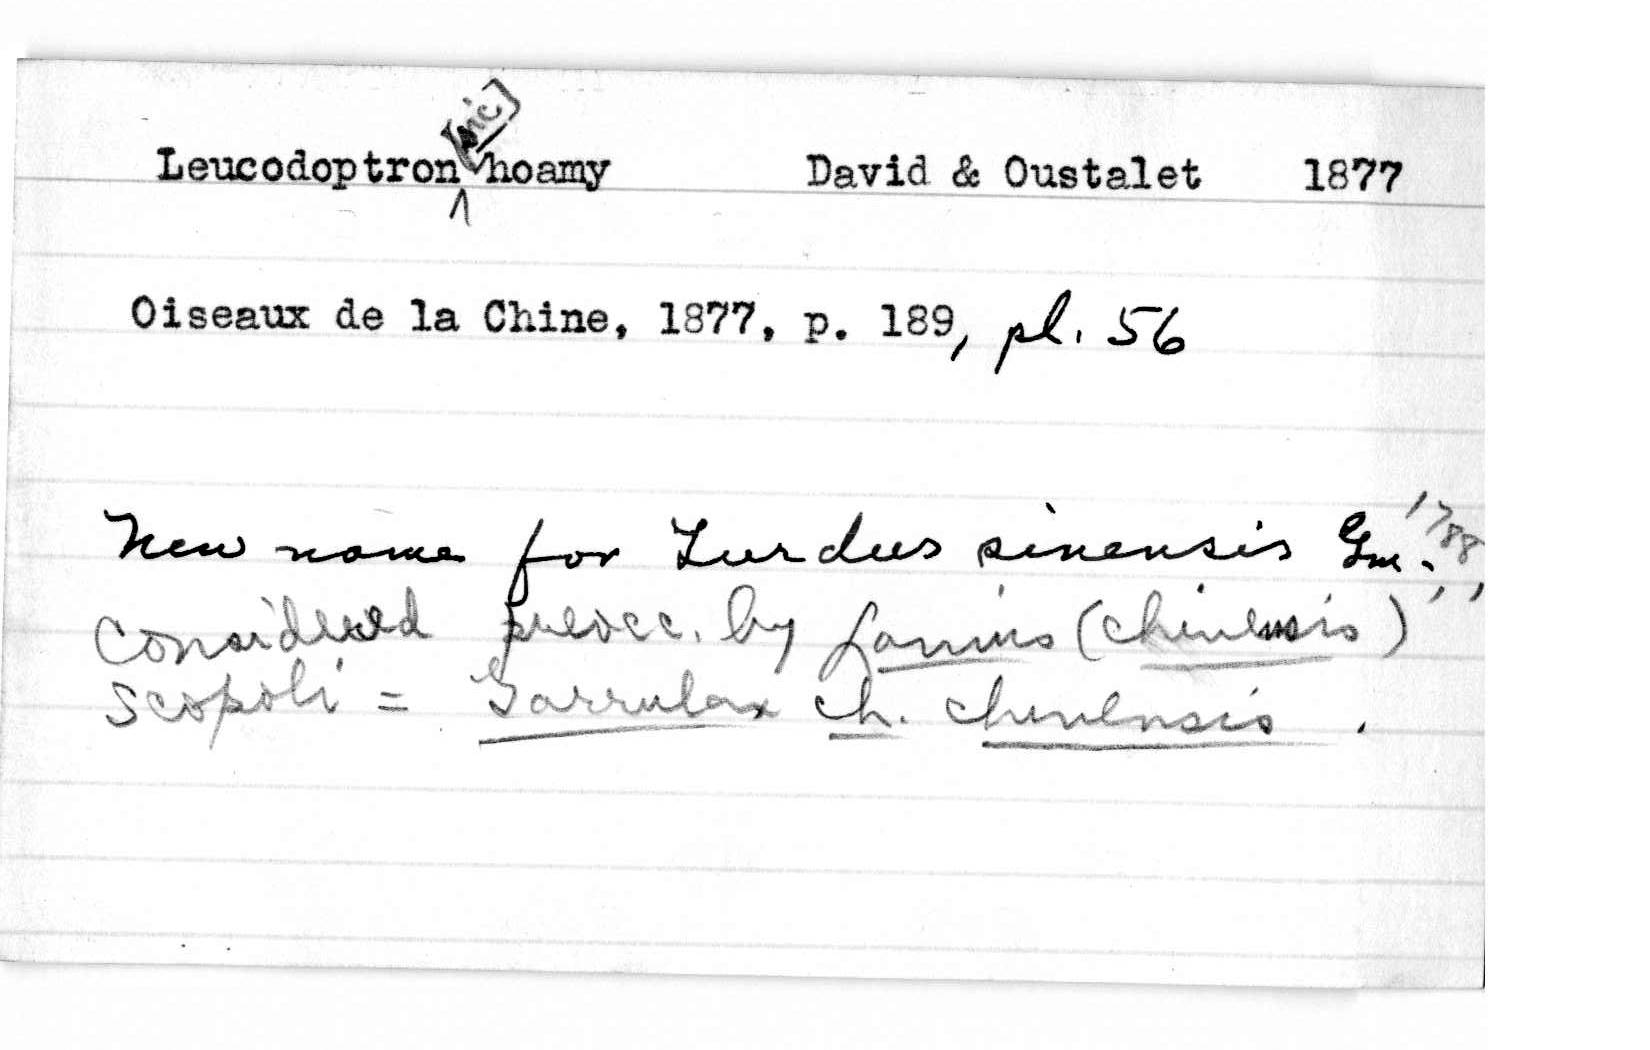 Leucodoptron [sic] hoamy David & Oustalet 1877
Oiseaux de la Chine, 1877, p. 189, pl. 56
New name for Turdus sinensis Gm. 1788,
considered preocc. by Lanius (chinensis)
Scopoli = Garrulax ch. chinensis.